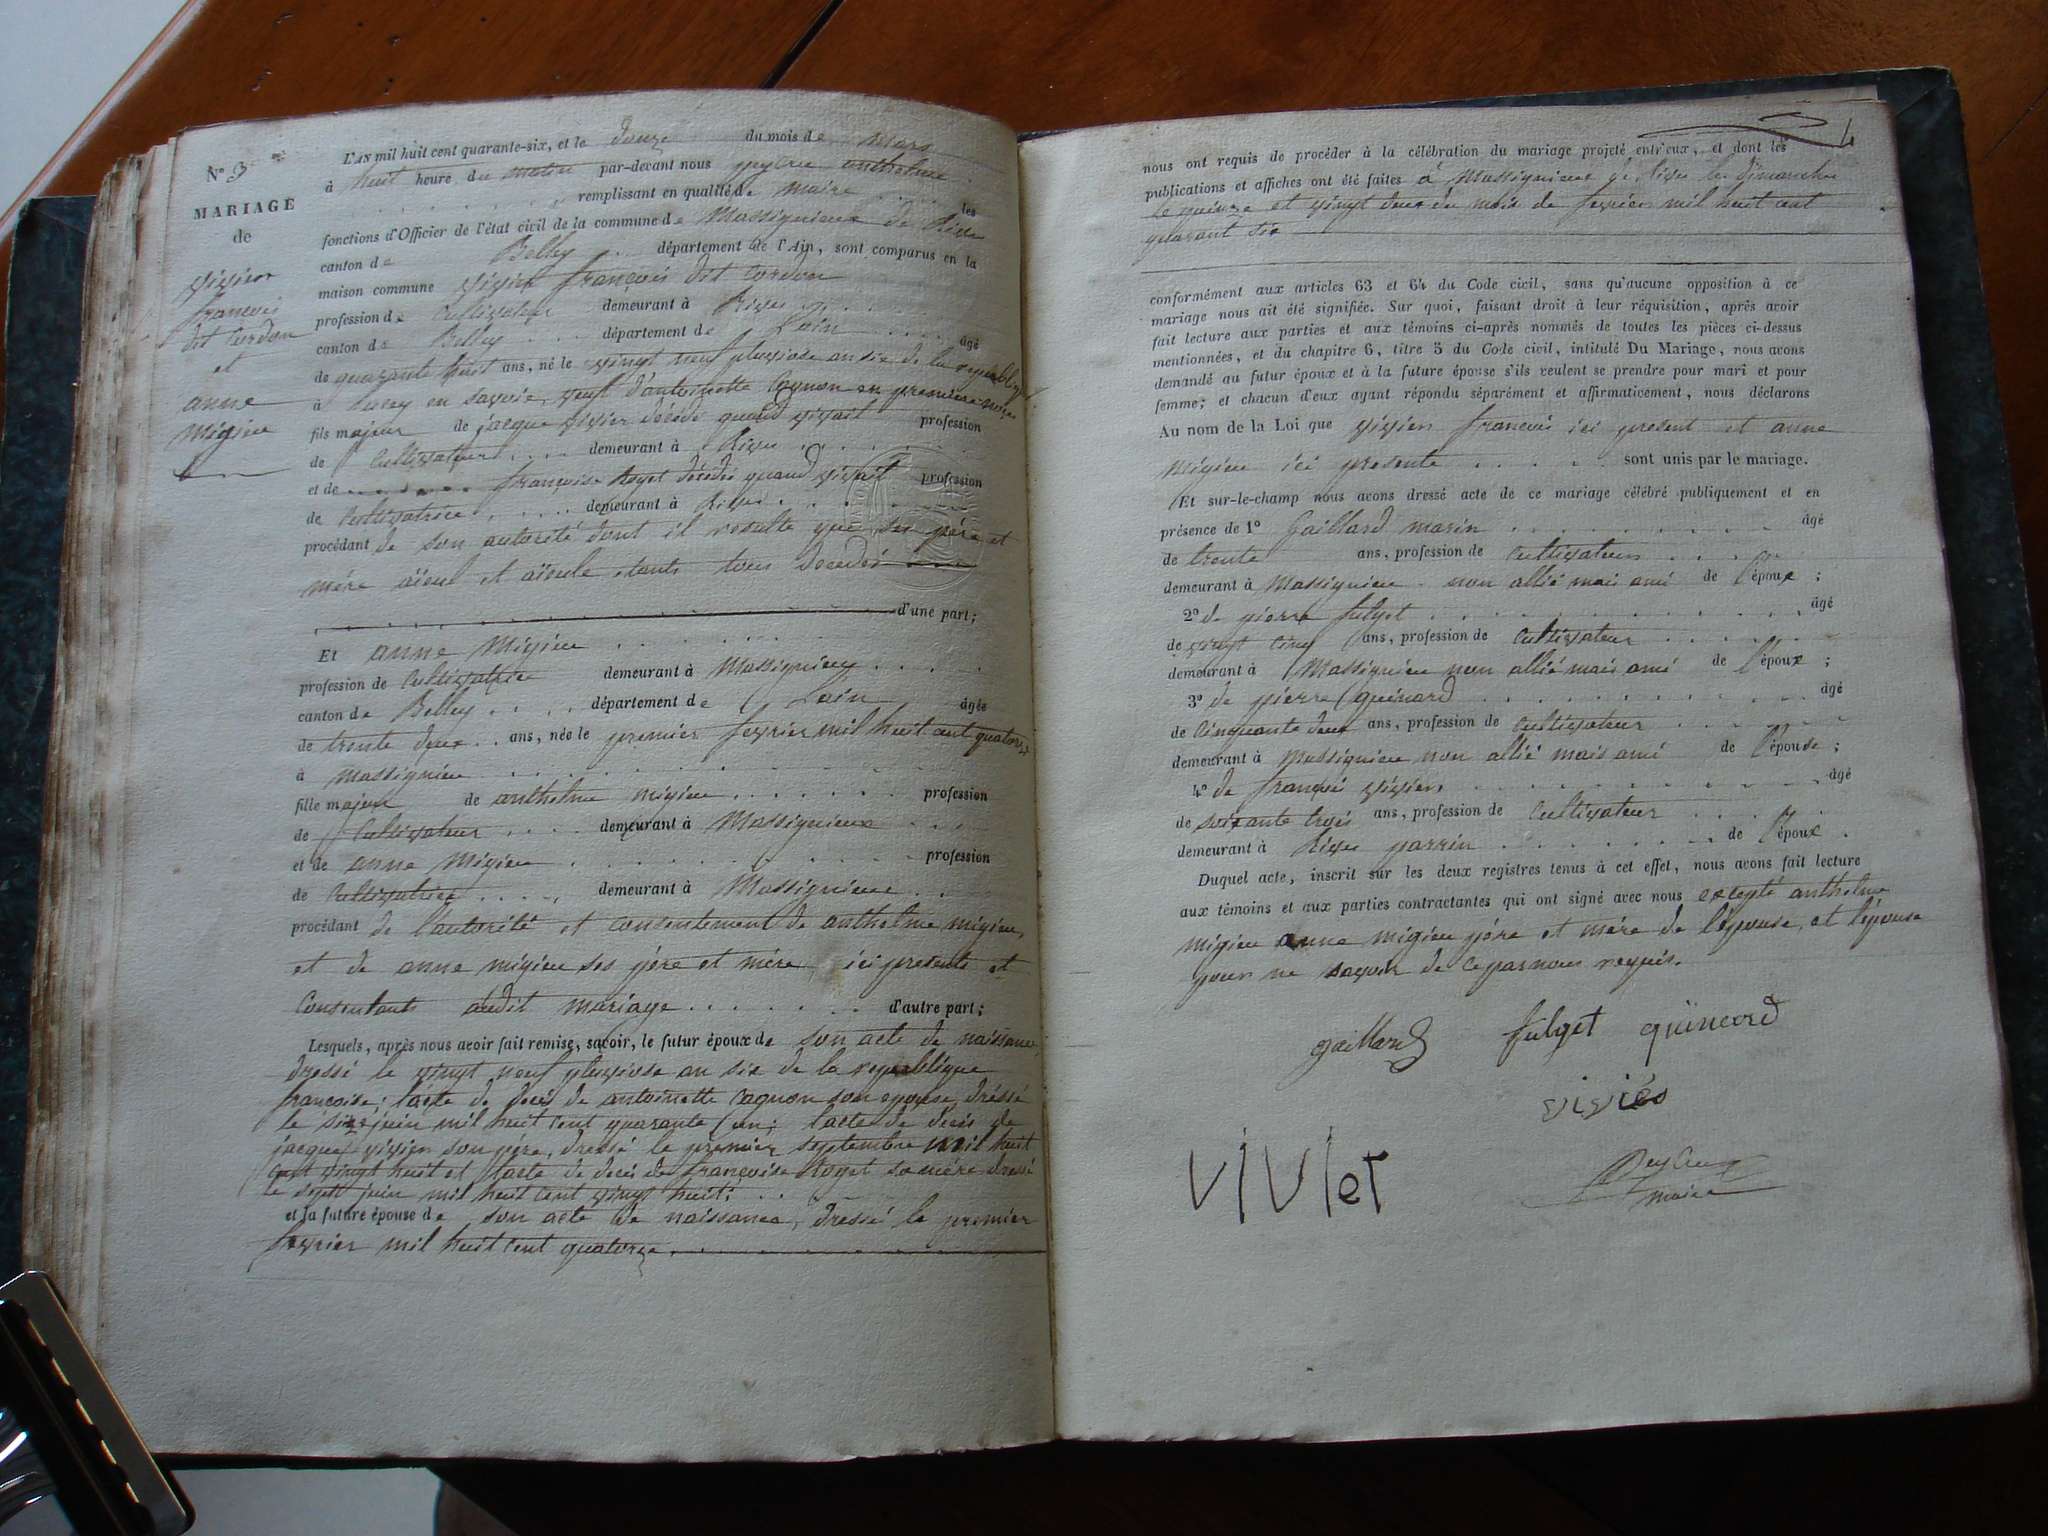 N° 3
MARIAGE
de
vivien
francois
dit Cordon
et
anne
Migieu
L'AN mil huit cent quarante-six, et le douze du mois de mars
à huit heure du matin par-devant nous peycru anthelme
remplissant en qualité de maire les
fonctions d'Officier de l'état civil de la commune de Massignieux de Rives
canton de Belley département de l'Ain, sont comparus en la
maison commune françois dit Cordon
profession de Cultivateur demeurant à Rives
canton de Belley département de Lain âgé
de quarante huit ans, né le vingt neuf pluviose an six de la republique
à en savoie, veuf d'antoinette Cagnon en premiere noce
fils majeur de jacque vivier décédé quand vivait profession
de Cultivateur demeurant à Rives
et de françoise Royet décédée quand vivait profession
de Cultivatrice demeurant à Rives
procédant de son autorité dont il resulte que ses père et
mère aïeul et aïeule étants tous decedés
d'une part;
Et anne Migieu
profession de Cultivatrice demeurant à Massignieu
canton de Belley département de Lain âgée
de trente deux ans, née le premier fevrier mil huit cent quatorze
à Massignieu
fille majeur de anthelme migieu profession
de Cultivateur demeurant à Massignieux
et de anne Migieu profession
de Cultivatrice demeurant à Massignieux
procédant de l'autorité et consentement de anthelme migieu,
et de anne migieu ses père et mère ici presents et
Consentants audit mariage d'autre part;
Lesquels, après nous avoir fait remise, savoir, le futur époux de son acte de naissance,
dressé le vingt neuf pluviose an six de la republique
francaise; l'acte de decés de antoinette cagnon son epouse, dréssé
le six juin mil huit cent quarante un; l'acte de décès de
jacque vivien son père, dressé le premier septembre mil huit
cent vingt huit et l'acte de decé de françoise Royet sa mère dressé
le sept juin mil huit cent vingt huit;
et la future épouse de son acte de naissance, dressé le premier
fevrier mil huit cent quatorze
nous ont requis de procéder à la célébration du mariage projeté entr'eux, et dont les
publications et affiches ont été faites à Massignieux de Rives les dimanches
le quinze et vingt deux du mois de fevrier mil huit cent
quarant six
conformément aux articles 63 et 64 du Code civil, sans qu'aucune opposition à ce
mariage nous ait été signifiée. Sur quoi, faisant droit à leur réquisition, après avoir
fait lecture aux parties et aux témoins ci-après nommés de toutes les pièces ci-dessus
mentionnées, et du chapitre 6, titre 5 du Code civil, intitulé Du Mariage, nous avons
demandé au futur époux et à la future épouse s'ils veulent se prendre pour mari et pour
femme; et chacun d'eux ayant répondu séparément et affirmativement, nous déclarons
Au nom de la Loi que vivien francois ici present et anne
Migieu ici presente sont unis par le mariage.
Et sur-le-champ nous avons dressé acte de ce mariage célébré publiquement et en
présence de 1° Gaillard marin âgé
de trente ans, profession de Cultivateur
demeurant à Massignieu non allié mais ami de l'époux;
2° de pierre fulget âgé
de vingt cinq ans, profession de Cultivateur
demeurant à Massignieu non allié mais ami de l'époux;
3° de pierre quinard âgé
de Cinquante deux ans, profession de Cultivateur
demeurant à Massignieu non allié mais ami de l'épouse;
4° de françoi vivien âgé
de soixante trois ans, profession de Cultivateur
demeurant à Rives parrin de l'époux.
Duquel acte, inscrit sur les deux registres tenus à cet effet, nous avons fait lecture
aux témoins et aux parties contractantes qui ont signé avec nous excepté anthelme
migieu anne migieu père et mère de l'épouse, et l'épouse
pour ne savoir de ce par nous requis.
gaillard fulget quineard
vivies
VIVIet
Peycru
maire